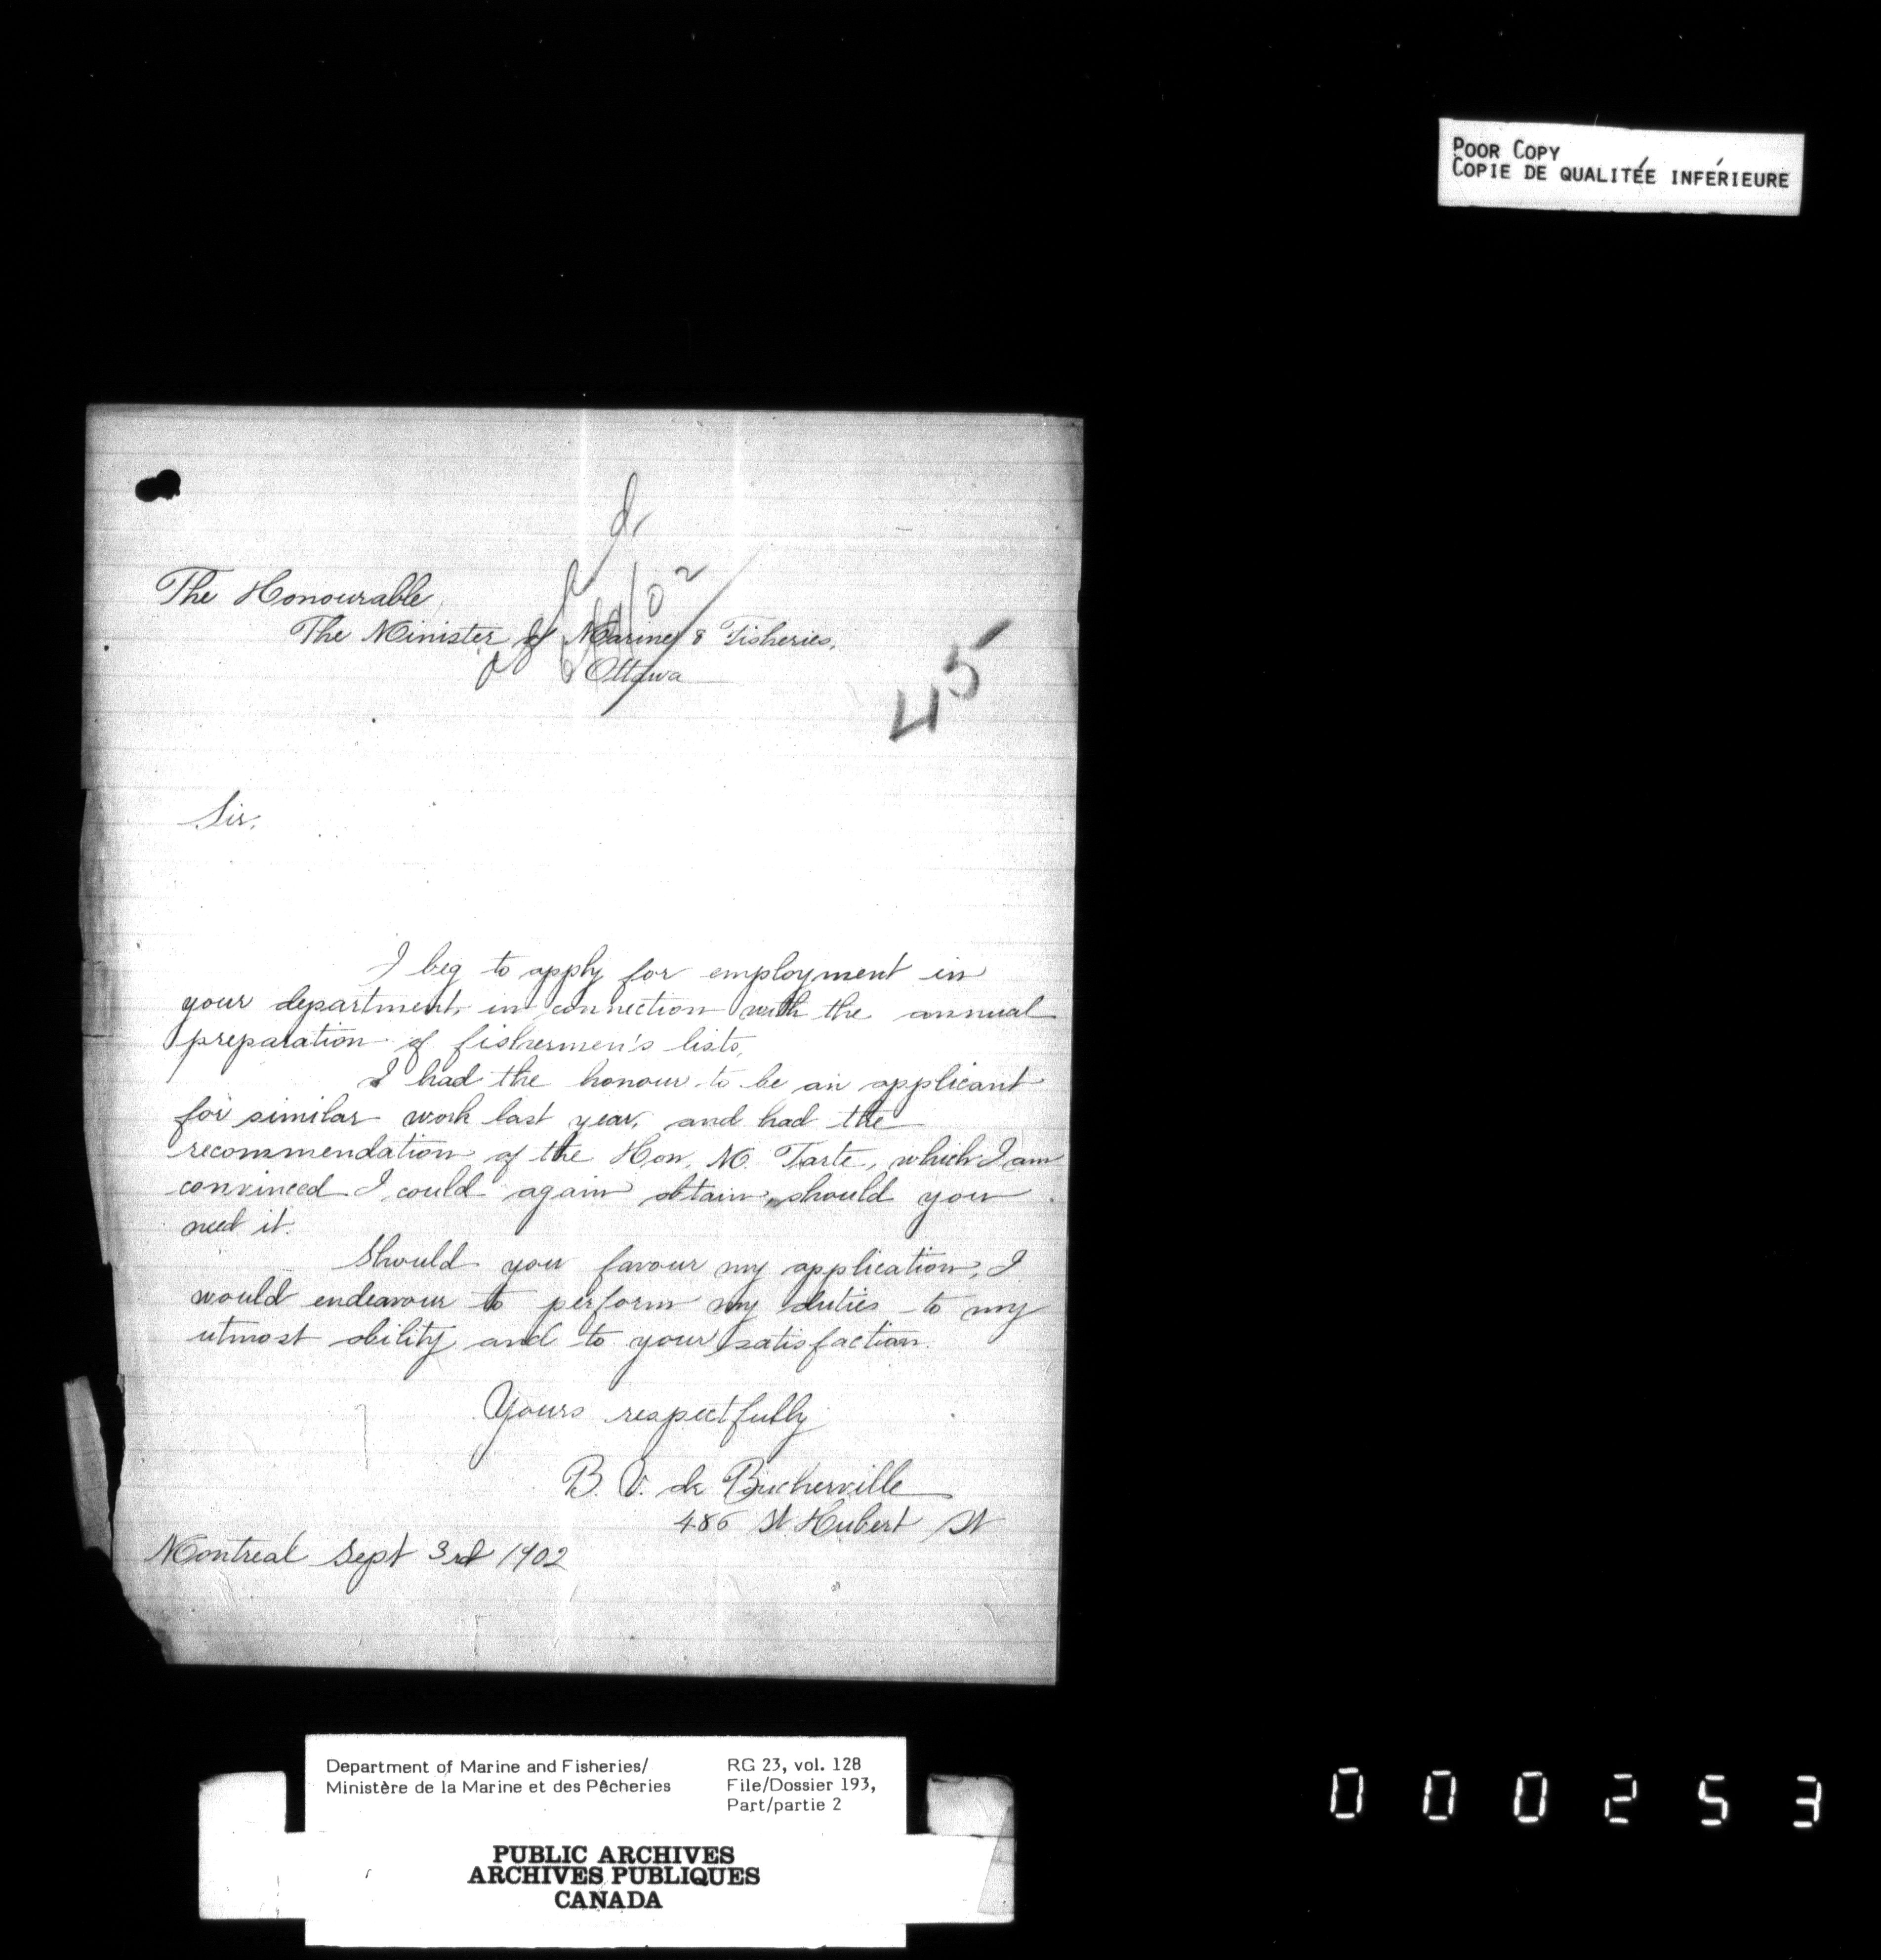 POOR COPY
COPIE DE QUALITÉE INFÉRIEURE
The Honourable,
The Minister of Marine & Fisheries,
Ottawa
45
Sir,
I beg to apply for employment in
your department, in connection with the annual
preparation of fishermen's lists,
I had the honour to be an applicant
for similar work last year, and had the
recommendation of the Hon. M. Tarte, which I am
convinced I could again obtain, should you
need it.
Should you favour my application, I
would endeavour to perform my duties to my
utmost ability and to your satisfaction.
Yours respectfully
B. V. de Bucherville
486 St Hubert St
Montreal Sept 3rd 1902
Department of Marine and Fisheries/
Ministère de la Marine et des Pêcheries
RG 23, vol. 128
File/Dossier 193,
Part/partie 2
PUBLIC ARCHIVES
ARCHIVES PUBLIQUES
CANADA
000253